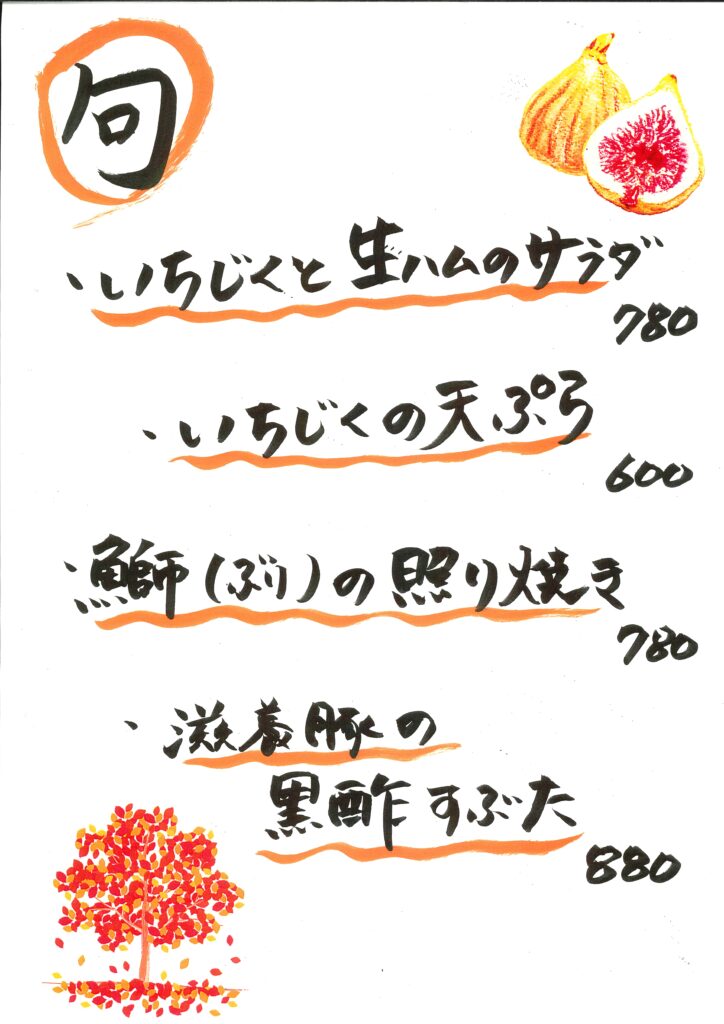 旬
・いちじくと生ハムのサラダ
780
・いちじくの天ぷら
600
・鰤(ぶり)の照り焼き
780
・滋養豚の
黒酢すぶた
880